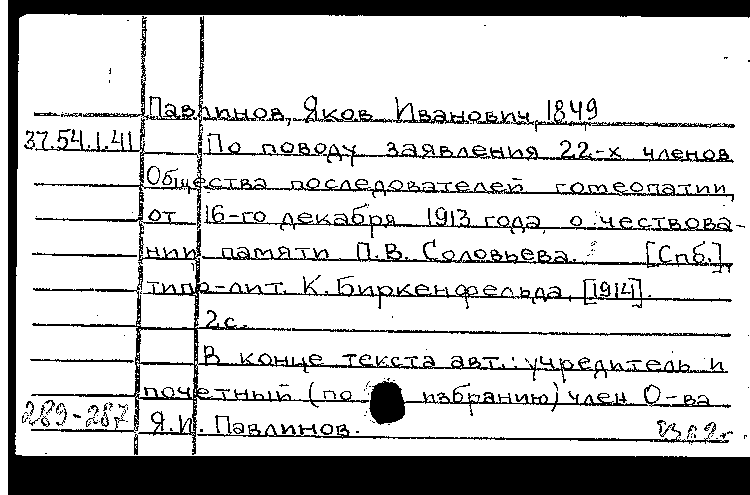 Павлинов, Яков Иванович, 1849
37.54.1.41 По поводу заявления 22-х членов
Общества последователей гомеопатии,
от 16-го декабря 1913 года, о чествова-
нии памяти П.В. Соловьева. [Спб.],
типо-лит. К. Биркенфельда, [1914].
2с.
В конце текста авт.: учредитель и
почетный (по избранию) член О-ва
289-287 Я.И. Павлинов.